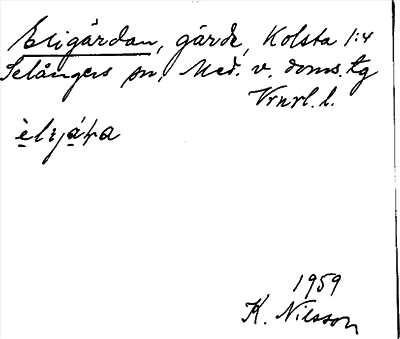 Eligärdan, gärde, Kolsta 1:4
Selångers sn, Med. v. doms. tg
Vrnrl. l.
1959
K. Nilsson